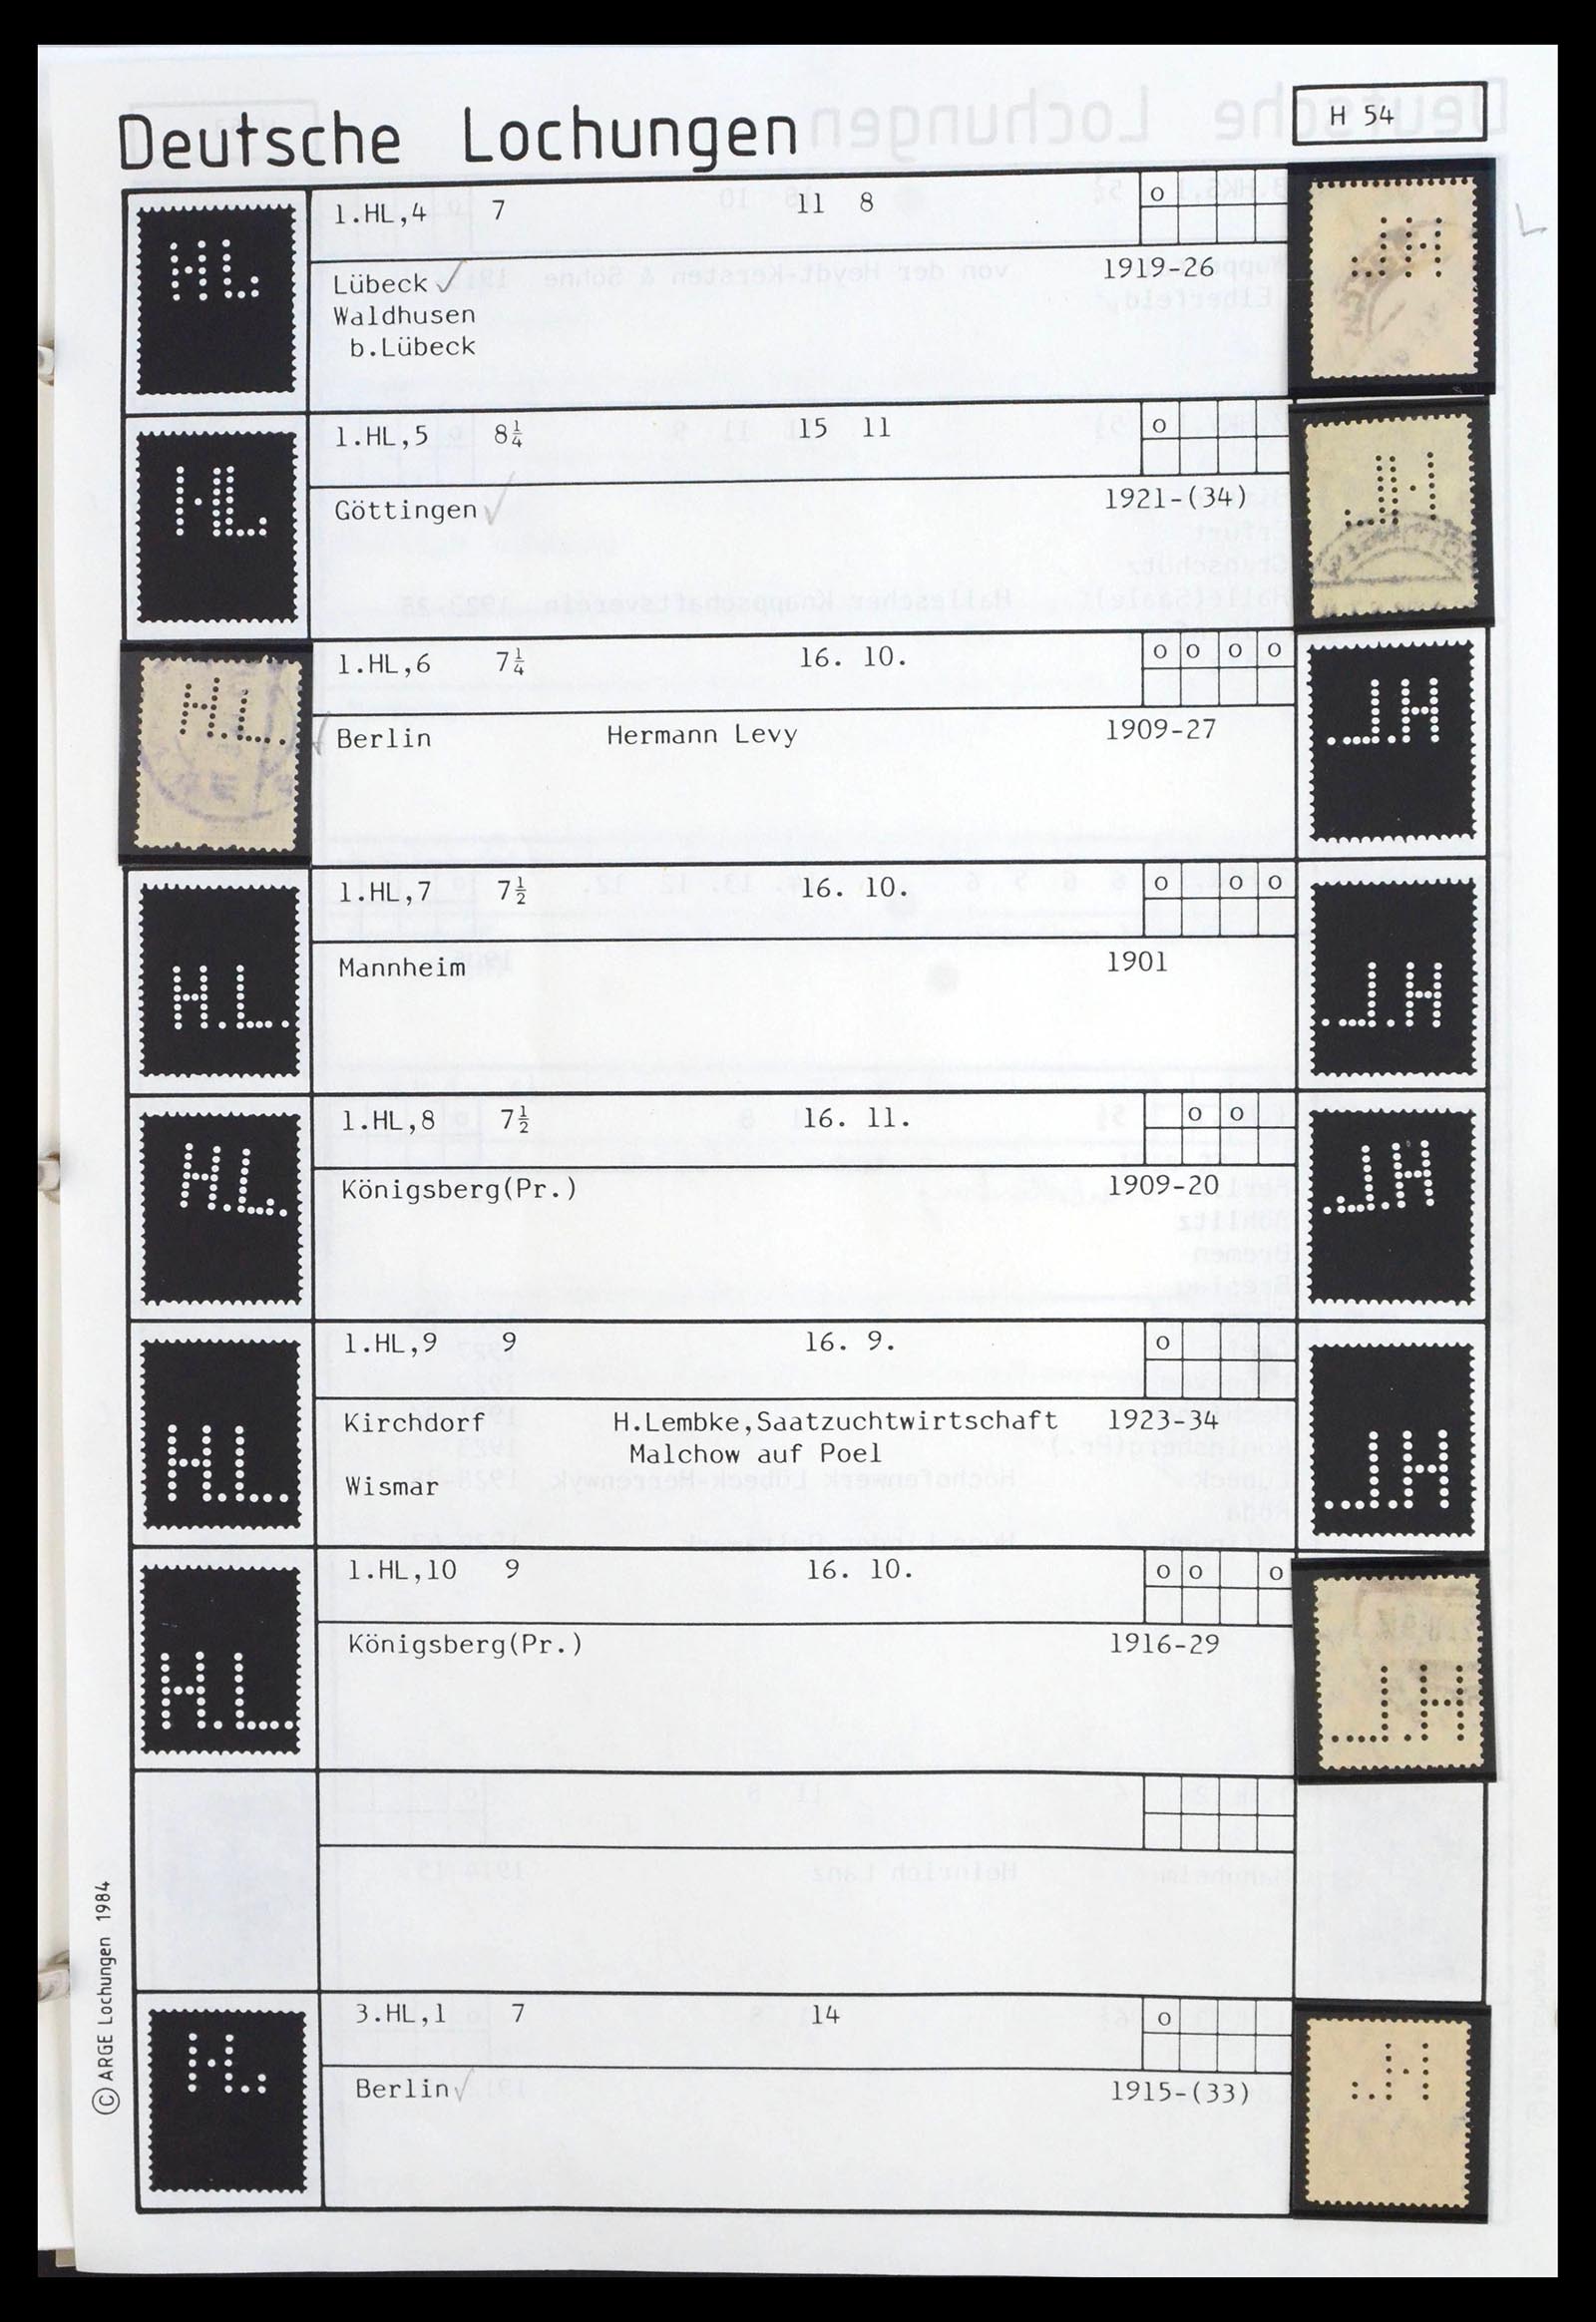 Deutsche Lochungen
H 54
1.HL,4 7 11 8 o
Lübeck 1919-26
Waldhusen
b.Lübeck
1.HL,5 8¼ 15 11 o
Göttingen 1921-(34)
1.HL,6 7¼ 16. 10. o o o o
Berlin Hermann Levy 1909-27
1.HL,7 7½ 16. 10. o o o
Mannheim 1901
1.HL,8 7½ 16. 11. o o
Königsberg(Pr.) 1909-20
1.HL,9 9 16. 9. o
Kirchdorf H.Lembke,Saatzuchtwirtschaft 1923-34
Malchow auf Poel
Wismar
1.HL,10 9 16. 10. o o o
Königsberg(Pr.) 1916-29
3.HL,1 7 14 o
Berlin 1915-(33)
© ARGE Lochungen 1984
HL
HL
H.L.
H.L.
H.L.
H.L.
H.L.
HL.